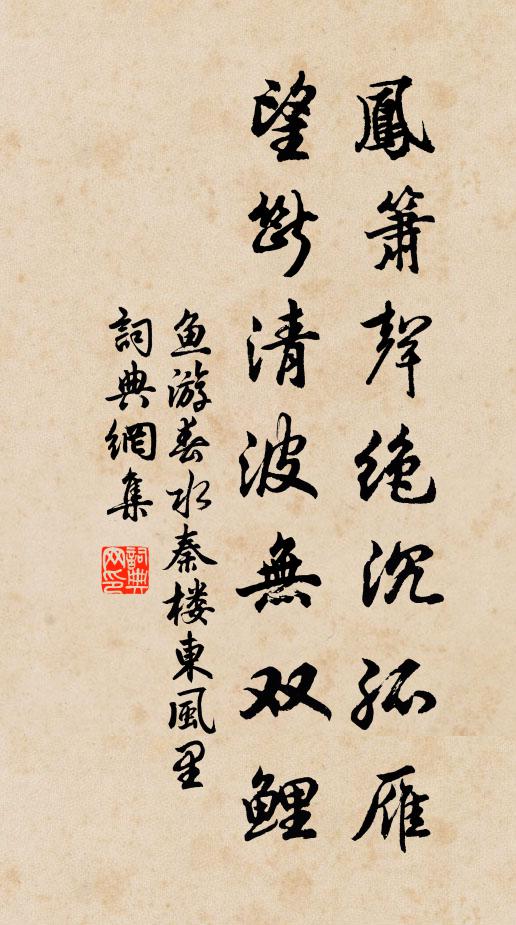 鳳簫聲絶沉孤雁
望斷清波無双鯉
魚游春水秦楼東風里
詞典網集
詞典网印